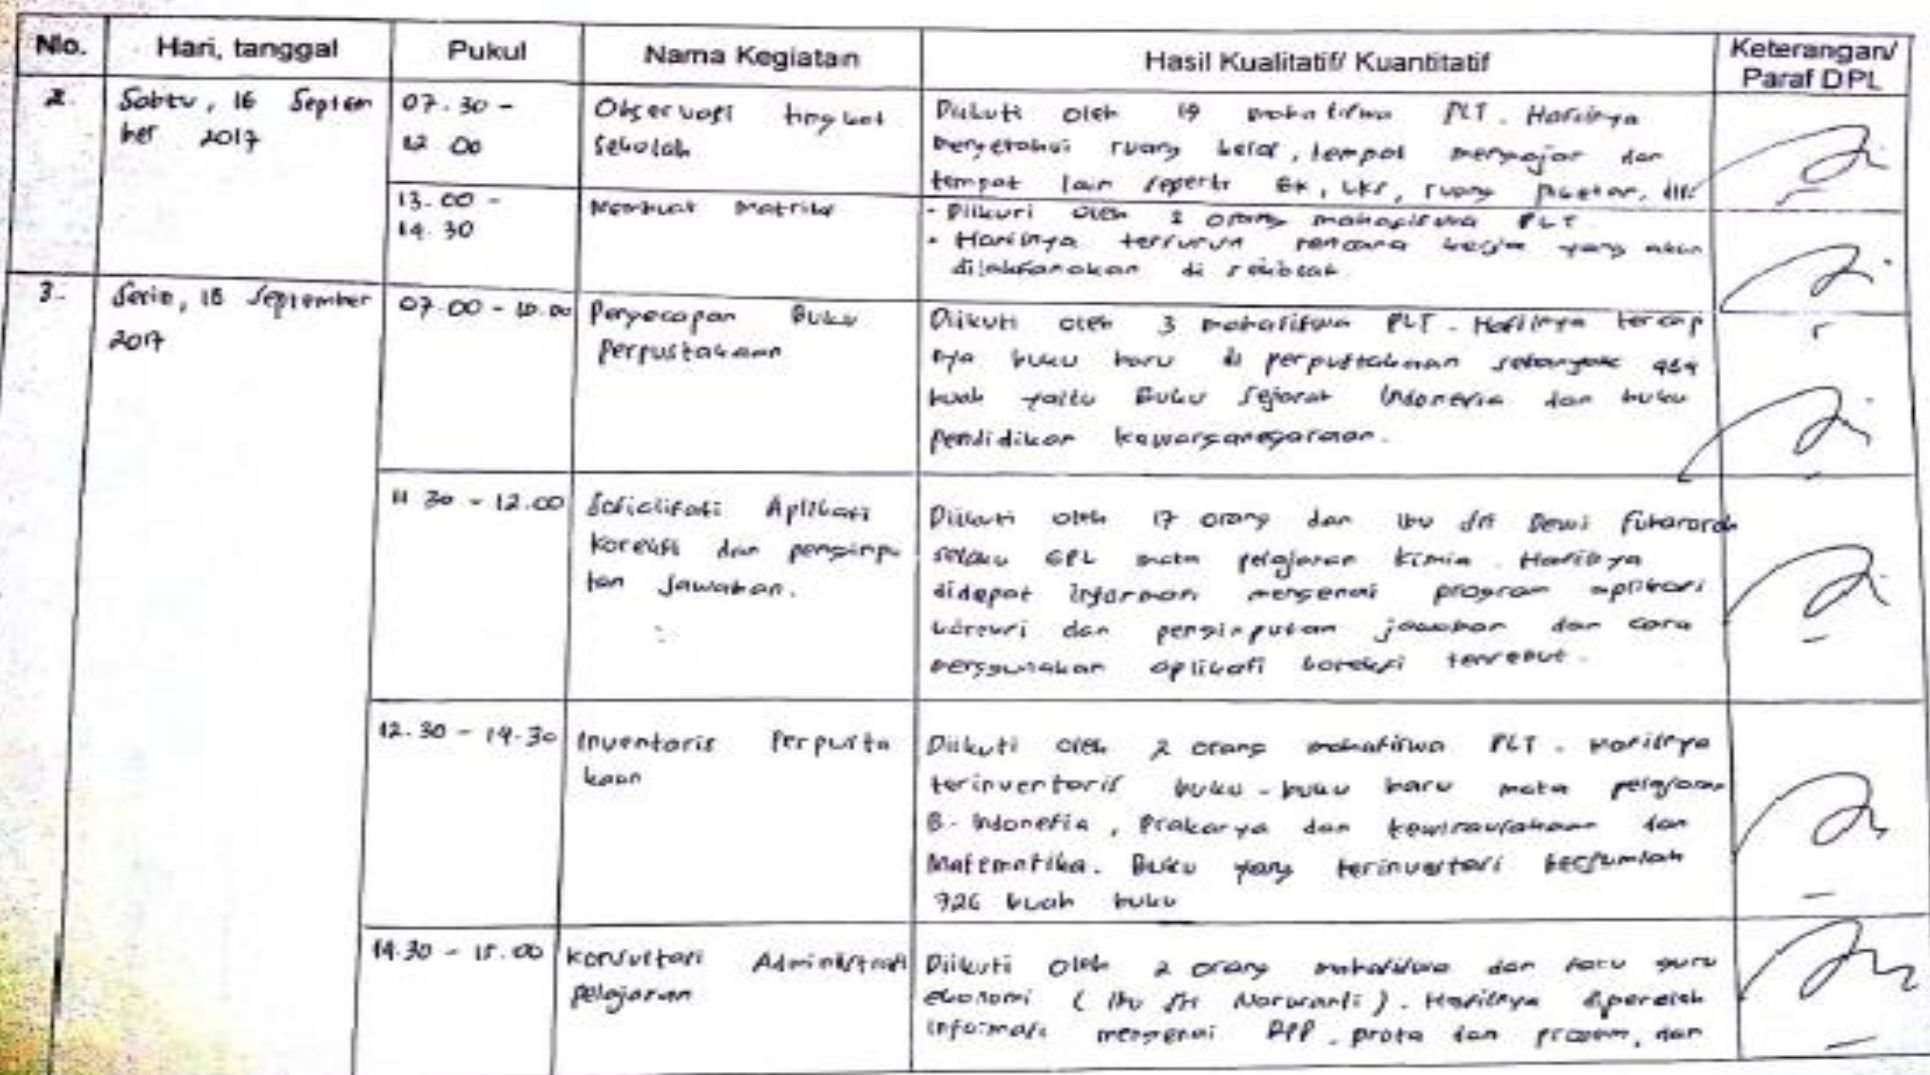 No. Hari, tanggal Pukul Nama Kegiatan Hasil Kualitatif/ Kuantitatif Keterangan/
Paraf DPL
2. Sabtu, 16 Septem
ber 2017
07.30 -
12.00
Observasi tingkat
Sekolah
Diikuti oleh 19 mahasiswa PLT. Hasilnya
mengetahui ruang kelas, tempat mengajar dan
tempat lain seperti BK, UKS, ruang dll
13.00 -
14.30
Membuat Matriks
- Diikuti oleh 2 orang mahasiswa PLT
- Hasilnya tersusun rencana kerja yang akan
dilaksanakan di sekolah.
3. Senin, 18 September
2017
07.00 - 10.00
Penyecapan Buku
Perpustakaan
Diikuti oleh 3 mahasiswa PLT. Hasilnya tercap
nya buku baru di perpustakaan sebanyak
buah yaitu Buku Sejarah Indonesia dan buku
Pendidikan Kewarganegaraan.
11.30 - 12.00
Sosialisasi Aplikasi
Koreksi dan penginpu
tan Jawaban.
Diikuti oleh 17 orang dan Ibu Sri Dewi
selaku GPL mata pelajaran Kimia. Hasilnya
didapat informasi mengenai program aplikasi
koreksi dan penginputan jawaban dan cara
menggunakan aplikasi koreksi tersebut.
12.30 - 14.30
Inventaris Perpusta
kaan
Diikuti oleh 2 orang mahasiswa PLT. Hasilnya
terinventaris buku-buku baru mata pelajaran
B. Indonesia, Prakarya dan kewirausahaan dan
Matematika. Buku yang terinventari berjumlah
726 buah buku
14.30 - 15.00
Konsultasi Administrasi
pelajaran
Diikuti oleh 2 orang mahasiswa dan satu guru
ekonomi (Ibu Sri Norwanti). Hasilnya diperoleh
informasi mengenai RPP, prota dan prosem, dan